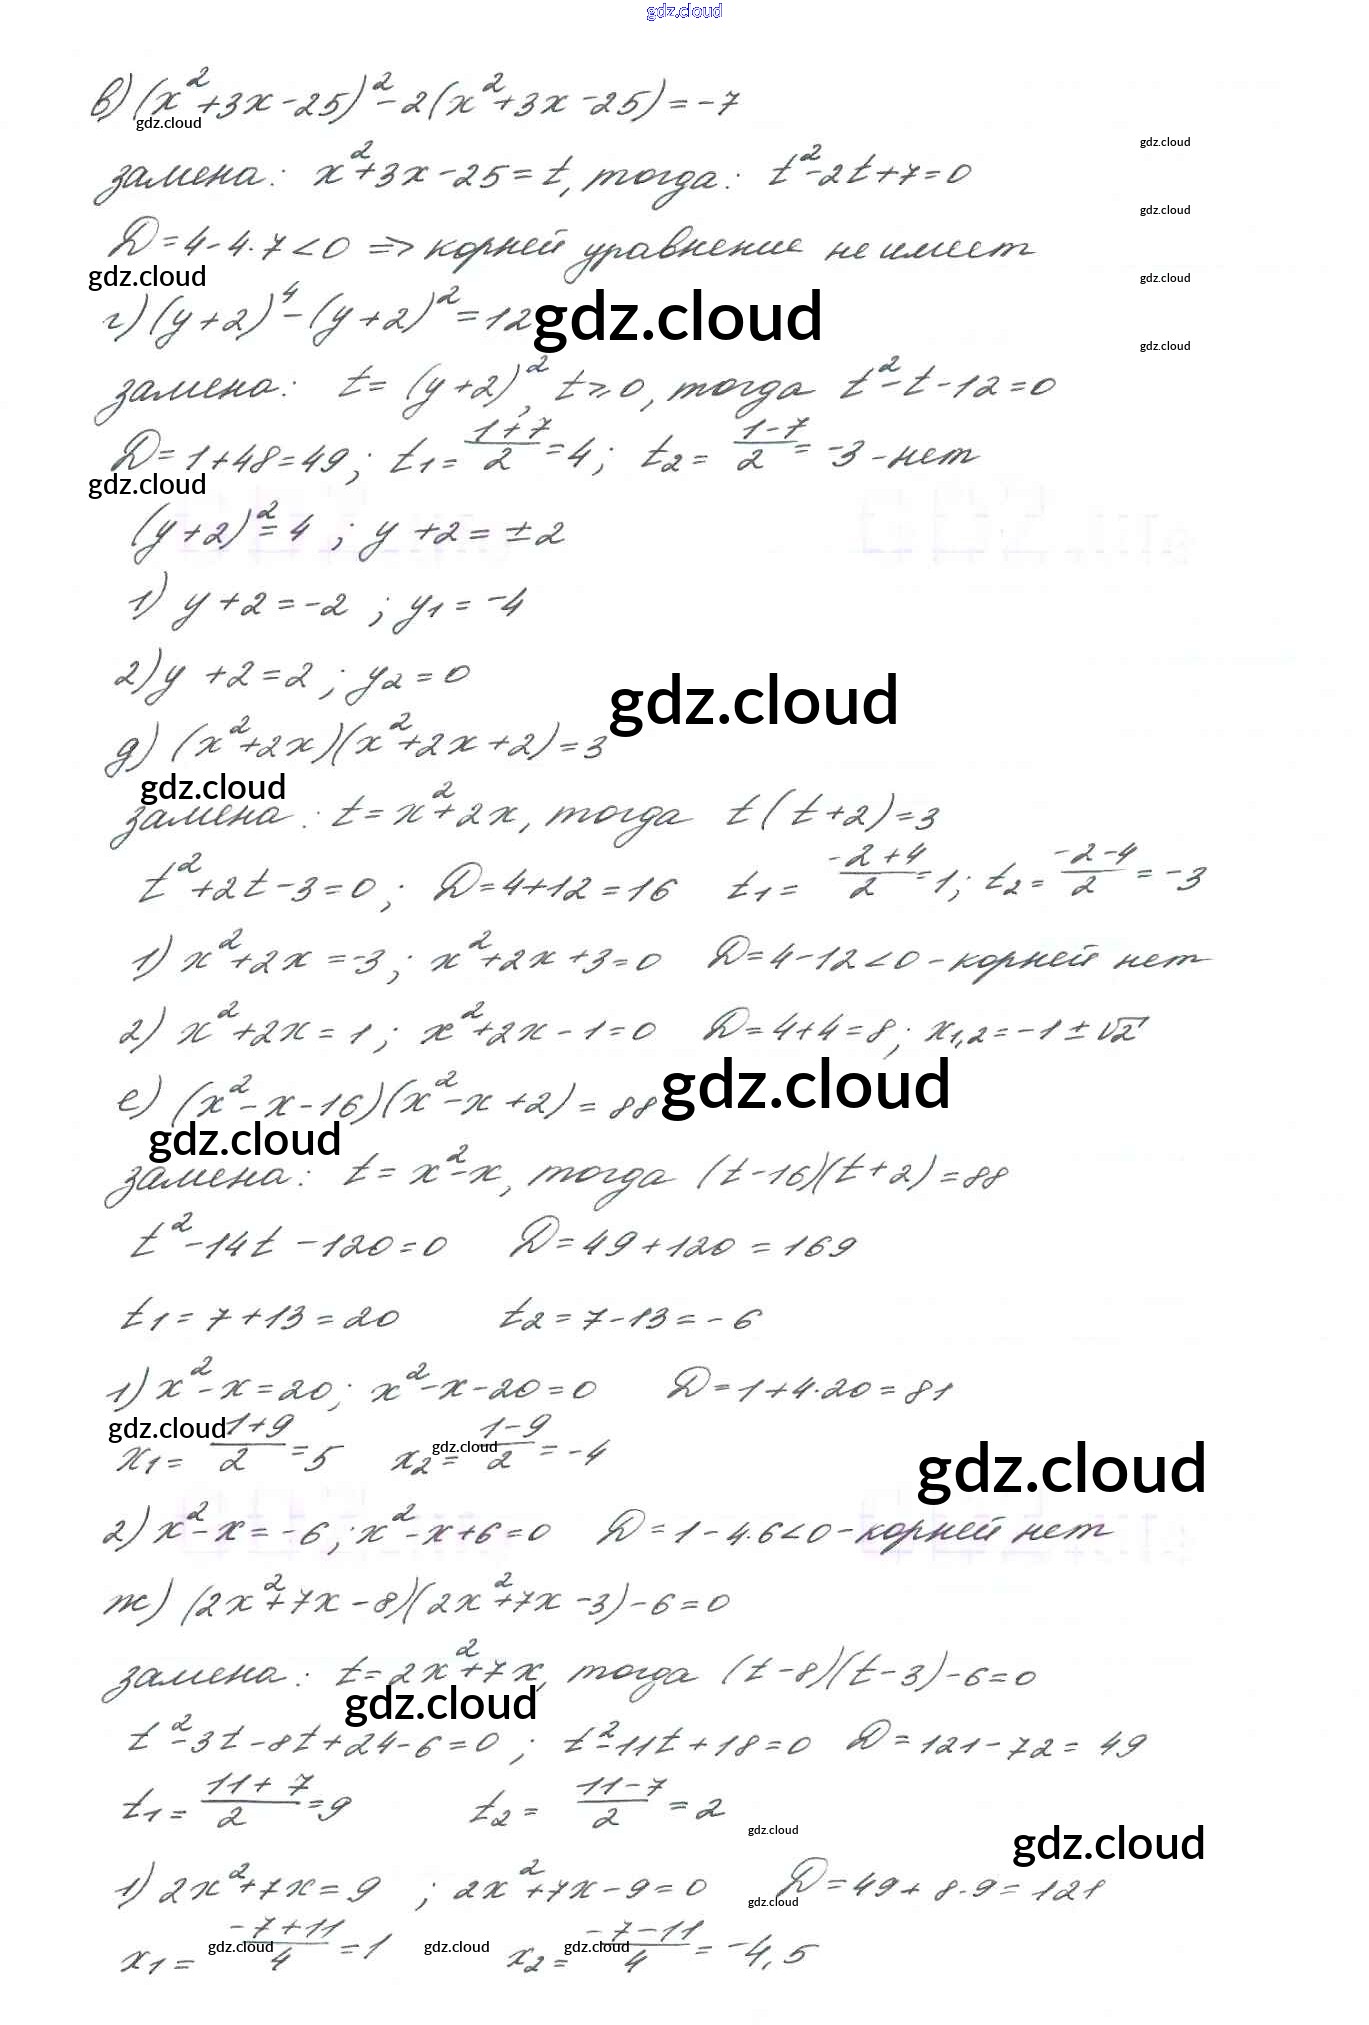 gdz.cloud
в) (x²+3x-25)²-2(x²+3x-25)=-7
gdz.cloud
gdz.cloud
замена: x²+3x-25=t, тогда: t²-2t+7=0
gdz.cloud
D=4-4·7<0 => корней уравнение не имеет
gdz.cloud
gdz.cloud
г) (y+2)⁴-(y+2)²=12
gdz.cloud
gdz.cloud
замена: t=(y+2)², t≥0, тогда t²-t-12=0
D=1+48=49; t₁=(1+7)/2=4; t₂=(1-7)/2=-3-нет
gdz.cloud
(y+2)²=4; y+2=±2
1) y+2=-2; y₁=-4
2) y+2=2; y₂=0
gdz.cloud
д) (x²+2x)(x²+2x+2)=3
gdz.cloud
замена: t=x²+2x, тогда t(t+2)=3
t²+2t-3=0; D=4+12=16 t₁=(-2+4)/2=1; t₂=(-2-4)/2=-3
1) x²+2x=-3; x²+2x+3=0 D=4-12<0-корней нет
2) x²+2x=1; x²+2x-1=0 D=4+4=8; x₁,₂=-1±√2
gdz.cloud
е) (x²-x-16)(x²-x+2)=88
gdz.cloud
замена: t=x²-x, тогда (t-16)(t+2)=88
t²-14t-120=0 D=49+120=169
t₁=7+13=20 t₂=7-13=-6
1) x²-x=20; x²-x-20=0 D=1+4·20=81
gdz.cloud
x₁=(1+9)/2=5 x₂=(1-9)/2=-4
gdz.cloud
gdz.cloud
2) x²-x=-6; x²-x+6=0 D=1-4·6<0-корней нет
ж) (2x²+7x-8)(2x²+7x-3)-6=0
замена: t=2x²+7x, тогда (t-8)(t-3)-6=0
gdz.cloud
t²-3t-8t+24-6=0; t²-11t+18=0 D=121-72=49
t₁=(11+7)/2=9 t₂=(11-7)/2=2
gdz.cloud
gdz.cloud
1) 2x²+7x=9; 2x²+7x-9=0 D=49+8·9=121
gdz.cloud
x₁=(-7+11)/4=1 x₂=(-7-11)/4=-4,5
gdz.cloud
gdz.cloud
gdz.cloud